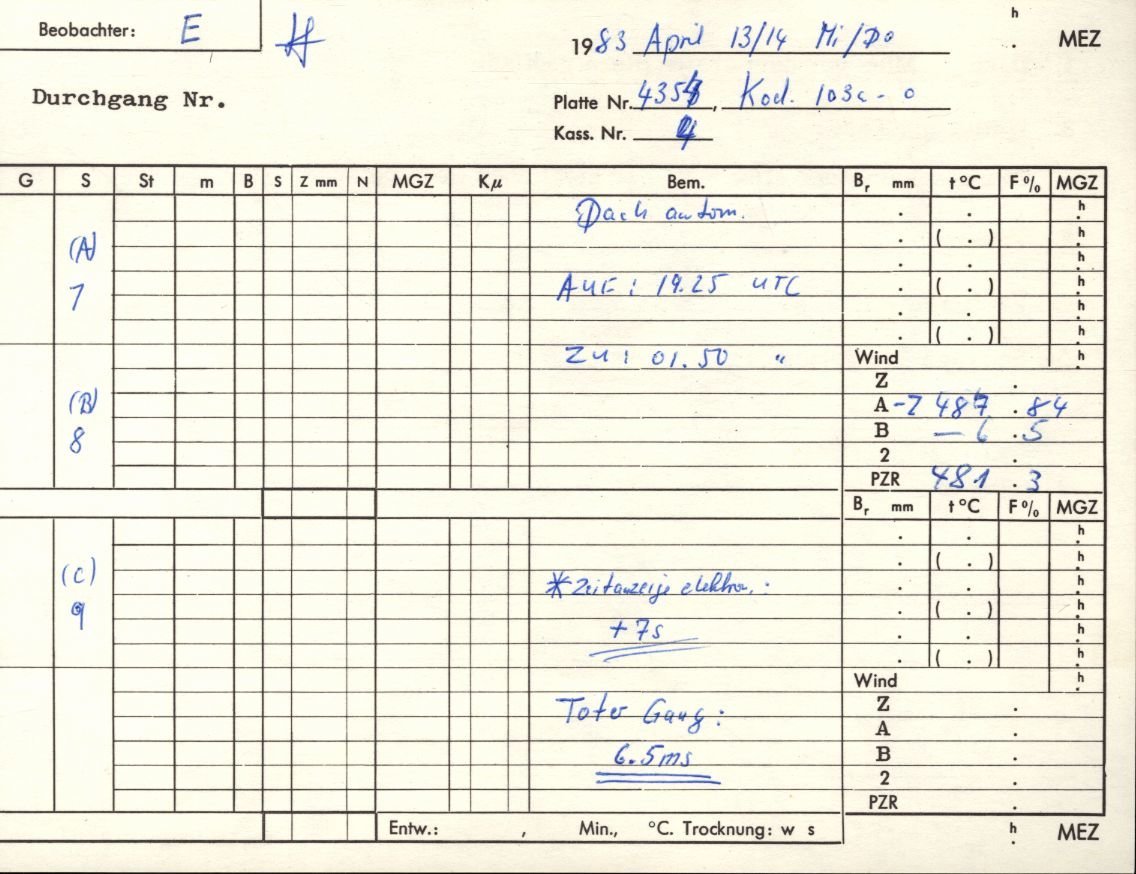 Beobachter: E
h
19 83 April 13/14 Mi/Do . MEZ
Durchgang Nr.
Platte Nr. 435 , Kod. 103a-0
Kass. Nr. 4
G S St m B S Z mm N MGZ Kμ Bem. Br mm t °C F % MGZ
Dach autom. . . h
(A) . ( . ) h
. . h
7 AUF : 19.25 UTC . ( . ) h
. . h
. ( . ) h
ZU : 01.50 " Wind h
Z .
(B) A -Z 487 . 84
8 B — 6 . 5
2 .
PZR 481 . 3
Br mm t °C F % MGZ
. . h
. ( . ) h
(C) * Zeitanzeige elektron. : . . h
9 . ( . ) h
+ 7s . . h
. ( . ) h
Wind h
Toter Gang : Z .
A .
6.5ms B .
2 .
PZR .
Entw.: , Min., °C. Trocknung: w s h . MEZ